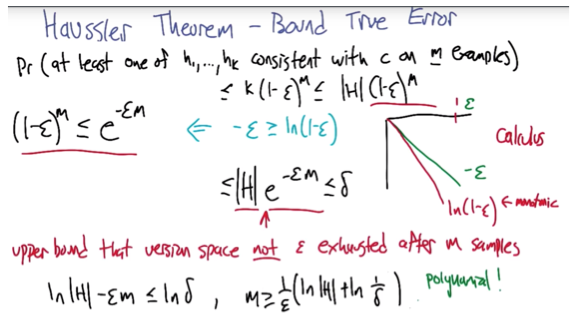 Haussler Theorem - Bound True Error
Pr (at least one of h₁,...,hₖ consistent with c on m examples)
≤ k(1-ε)ᵐ ≤ |H| (1-ε)ᵐ
(1-ε)ᵐ ≤ e^(-εm) ⇐ -ε ≥ ln(1-ε)
ε
Calculus
-ε
ln(1-ε) ← monotonic
≤|H| e^(-εm) ≤ δ
upper bound that version space not ε exhausted after m samples
ln|H| - εm ≤ ln δ , m ≥ 1/ε (ln|H| + ln 1/δ) polynomial!